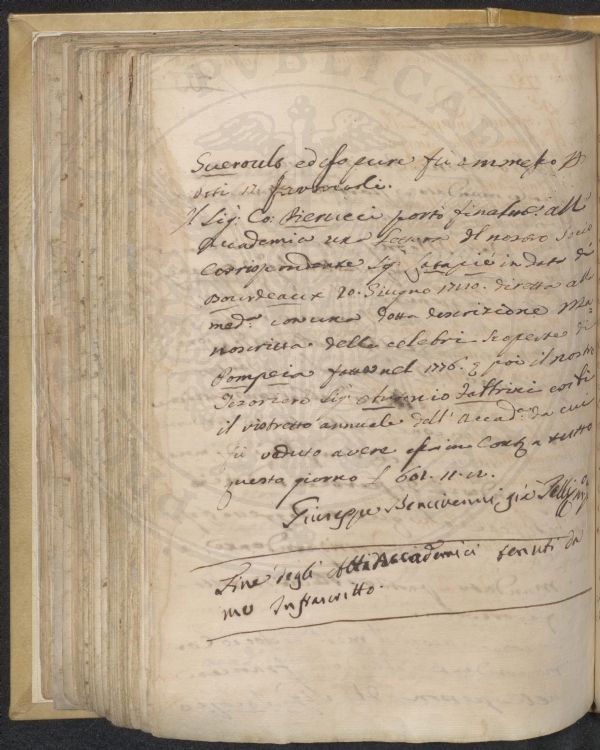 PVBLICAE
ed esso pure fù ammesso p
voti 12 favorevoli.
Il Sig: Co: Pierucci portò finalm:e all'
Accademia una Lettera del nostro Socio
Corrispondente Sig: Latapie in data di
Bourdeaux 20. Giugno diretta alla
med:a con una dotta descrizione Ma=
noscritta delle celebri Scoperte di
Pompeia fatta nel 1776. e poi il nostro
Tesoriero Sig: Antonio esibì
il ristretto annuale dell' Accad:a da cui
fù veduto avere essa in a tutto
questo giorno £ 601. 11. 12.
Giuseppe Bencivenni già Pelli
Fine degli Atti Accademici tenuti da
me Infrascritto.